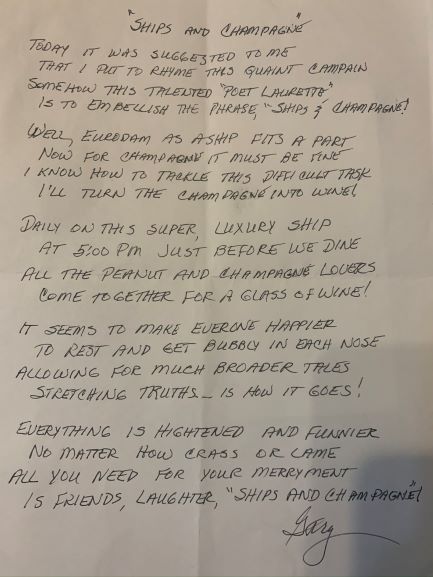 "SHIPS AND CHAMPAGNE"
TODAY IT WAS SUGGESTED TO ME
THAT I PUT TO RHYME THIS QUAINT CAMPAIN
SOMEHOW THIS TALENTED "POET LAURETTE"
IS TO EMBELLISH THE PHRASE, "SHIPS & CHAMPAGNE!
WELL, EURODAM AS A SHIP FITS A PART
NOW FOR CHAMPAGNE IT MUST BE FINE
I KNOW HOW TO TACKLE THIS DIFFICULT TASK
I'LL TURN THE CHAMPAGNE INTO WINE!
DAILY ON THIS SUPER, LUXURY SHIP
AT 5:00 PM JUST BEFORE WE DINE
ALL THE PEANUT AND CHAMPAGNE LOVERS
COME TOGETHER FOR A GLASS OF WINE!
IT SEEMS TO MAKE EVERONE HAPPIER
TO REST AND GET BUBBLY IN EACH NOSE
ALLOWING FOR MUCH BROADER TALES
STRETCHING TRUTHS — IS HOW IT GOES!
EVERYTHING IS HIGHTENED AND FUNNIER
NO MATTER HOW CRASS OR LAME
ALL YOU NEED FOR YOUR MERRYMENT
IS FRIENDS, LAUGHTER, "SHIPS AND CHAMPAGNE"!
Gary